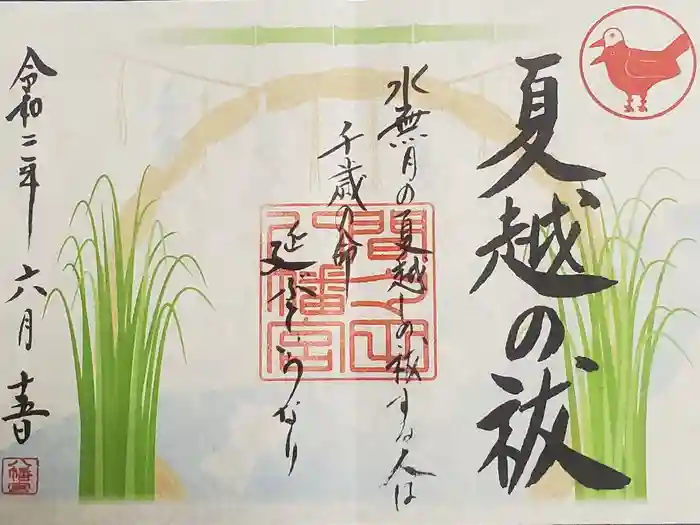 夏越の祓
水無月の夏越しの祓する人は
千歳の命
延ぶといふなり
間々田
八幡宮
令和二年 六月 十五日
八幡宮